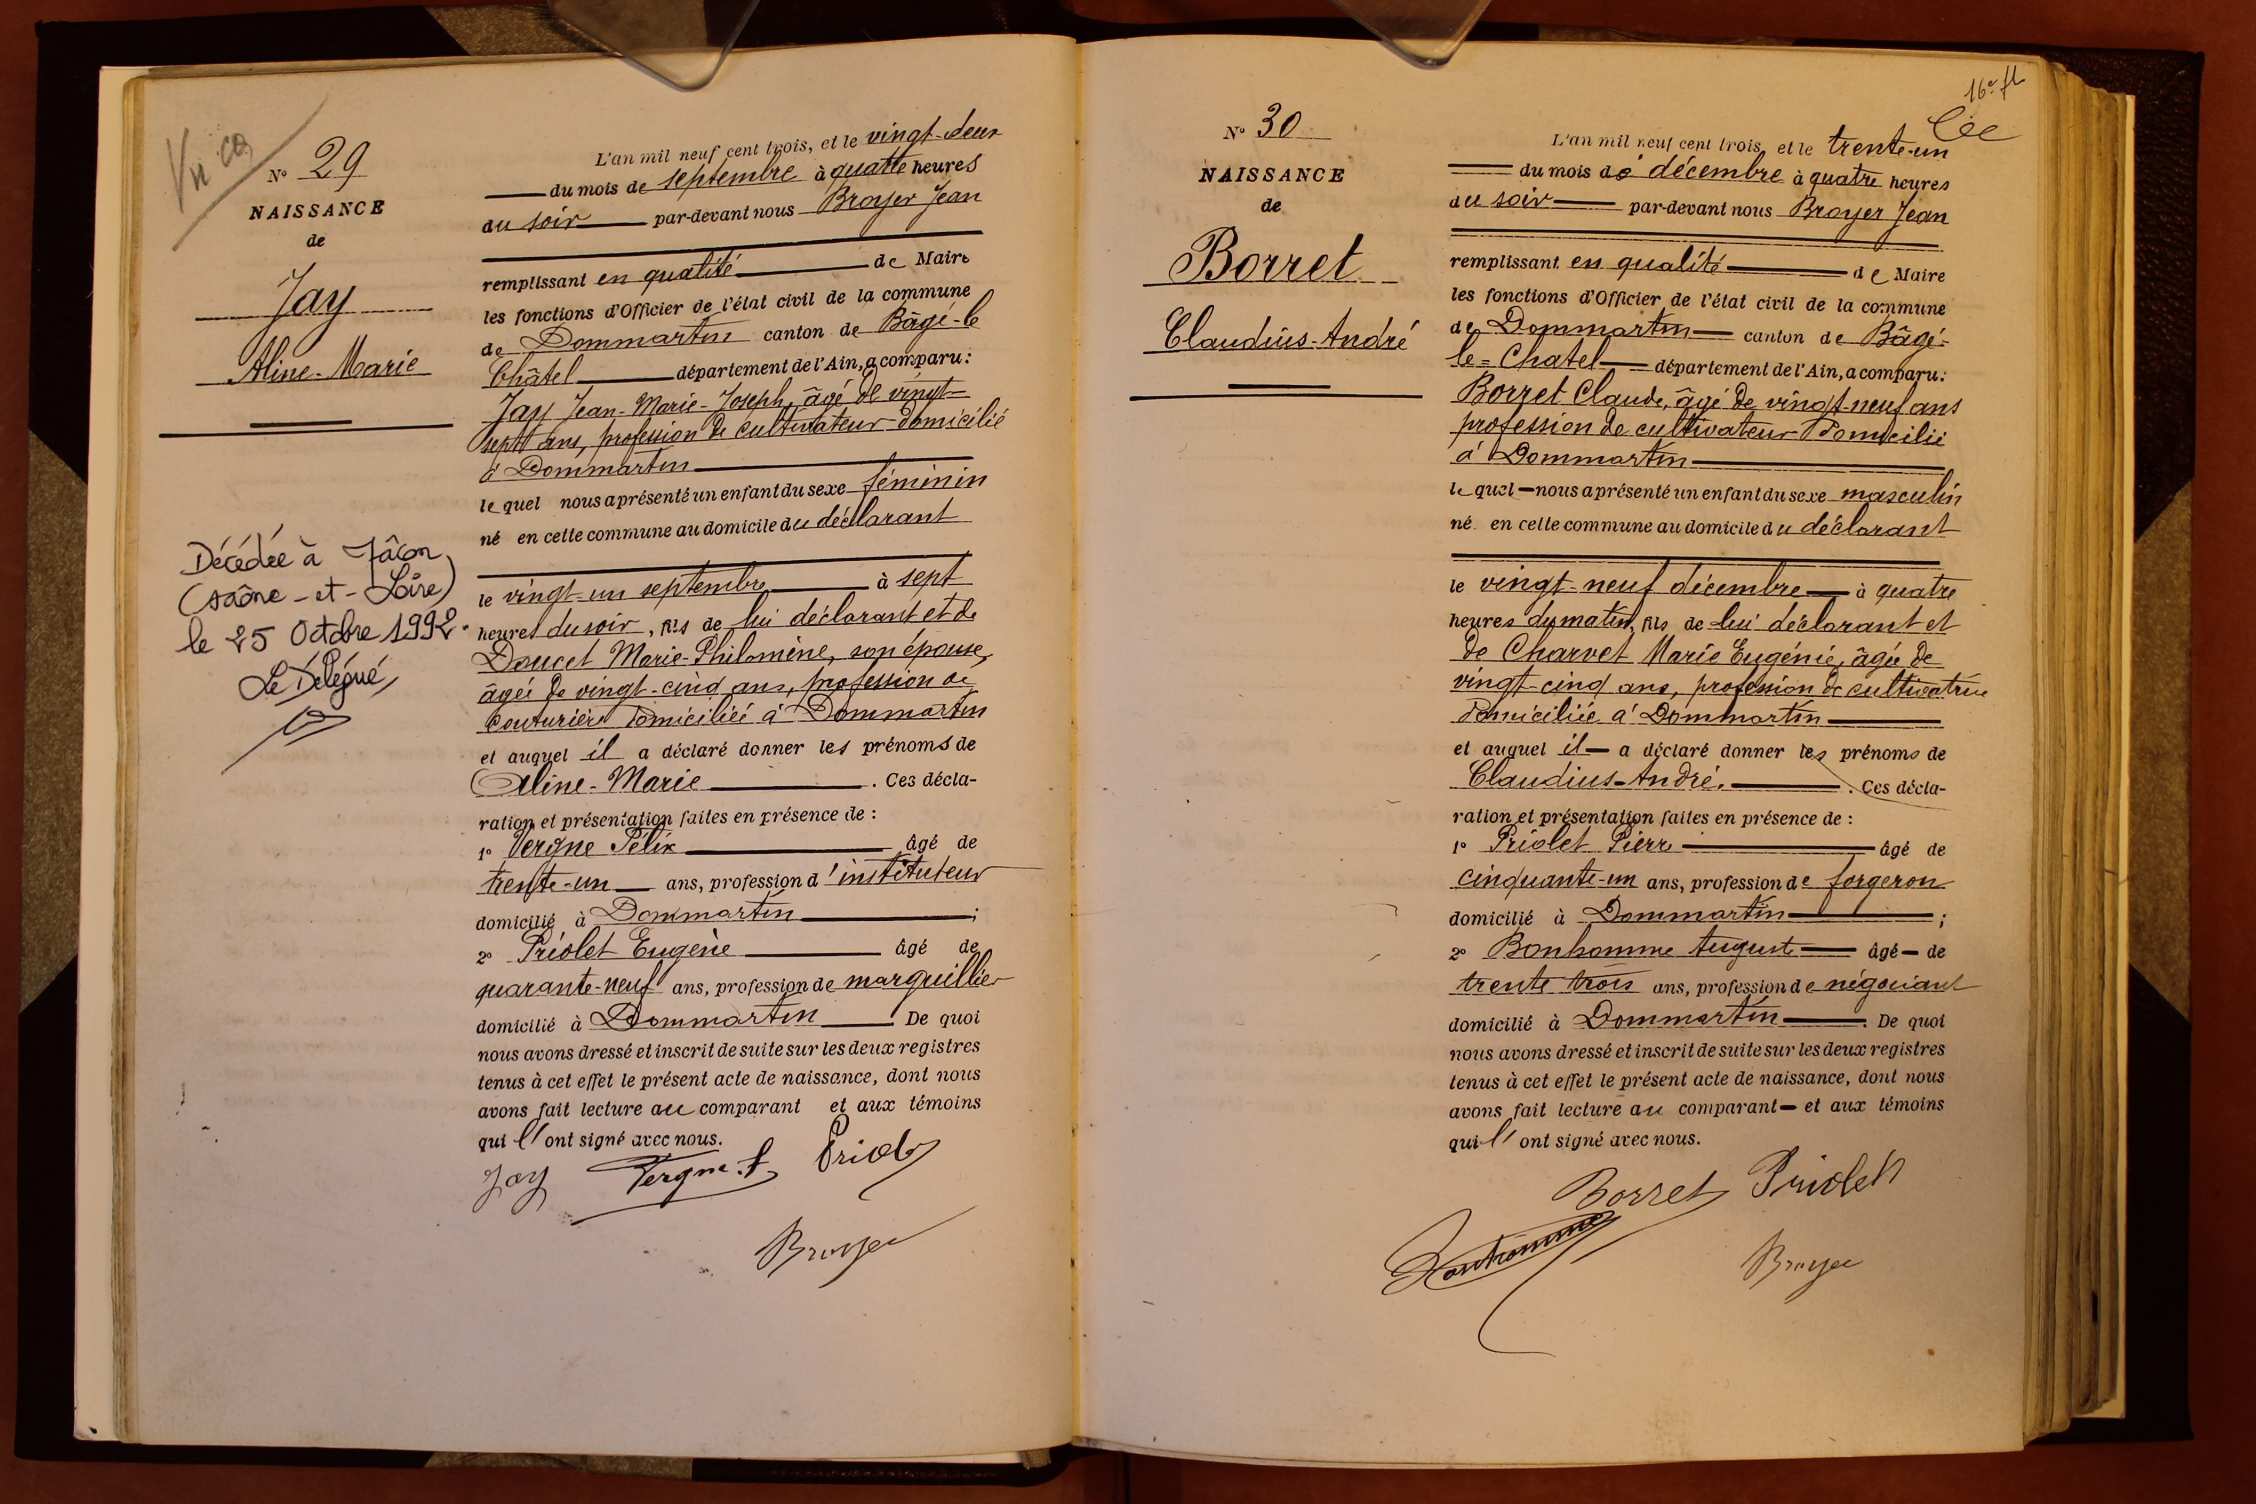 N° 29
NAISSANCE
de
Jay
Aline-Marie
Décédée à Mâcon
(Saône-et-Loire)
le 25 Octobre 1992.
Le Délégué,
L'an mil neuf cent trois, et le vingt-deux
du mois de septembre à quatre heures
du soir par-devant nous Broyer Jean
remplissant en qualité de Maire
les fonctions d'Officier de l'état civil de la commune
de Dommartin canton de Bâgé-le
Châtel département de l'Ain, a comparu :
Jay Jean-Marie-Joseph, âgé de vingt-
sept ans, profession de cultivateur domicilié
à Dommartin
le quel nous a présenté un enfant du sexe féminin
né en cette commune au domicile du déclarant
le vingt-un septembre à sept
heures du soir, fils de lui déclarant et de
Doucet Marie-Philomène, son épouse,
âgée de vingt-cinq ans, profession de
couturière domiciliée à Dommartin
et auquel il a déclaré donner les prénoms de
Aline-Marie. Ces décla-
ration et présentation faites en présence de :
1° Vergne Félix âgé de
trente-un ans, profession d'instituteur
domicilié à Dommartin ;
2° Priolet Eugène âgé de
quarante-neuf ans, profession de marguillier
domicilié à Dommartin. De quoi
nous avons dressé et inscrit de suite sur les deux registres
tenus à cet effet le présent acte de naissance, dont nous
avons fait lecture au comparant et aux témoins
qui l'ont signé avec nous.
Jay Vergne. f Priolet
Broyer
16e ft
N° 30
NAISSANCE
de
Borret
Claudius-André
L'an mil neuf cent trois, et le trente-un
du mois de décembre à quatre heures
du soir par-devant nous Broyer Jean
remplissant en qualité de Maire
les fonctions d'Officier de l'état civil de la commune
de Dommartin canton de Bâgé-
le-Chatel département de l'Ain, a comparu :
Borret Claude, âgé de vingt-neuf ans
profession de cultivateur domicilié
à Dommartin
le quel nous a présenté un enfant du sexe masculin
né en cette commune au domicile du déclarant
le vingt-neuf décembre à quatre
heures du matin, fils de lui déclarant et
de Charvet Marie Eugénie, âgée de
vingt-cinq ans, profession de cultivatrice
domiciliée à Dommartin
et auquel il a déclaré donner les prénoms de
Claudius-André. Ces décla-
ration et présentation faites en présence de :
1° Priolet Pierre âgé de
cinquante-un ans, profession de forgeron
domicilié à Dommartin ;
2° Bonhomme August âgé de
trente trois ans, profession de négociant
domicilié à Dommartin. De quoi
nous avons dressé et inscrit de suite sur les deux registres
tenus à cet effet le présent acte de naissance, dont nous
avons fait lecture au comparant et aux témoins
qui l'ont signé avec nous.
Borret Priolet
Bonhomme
Broyer